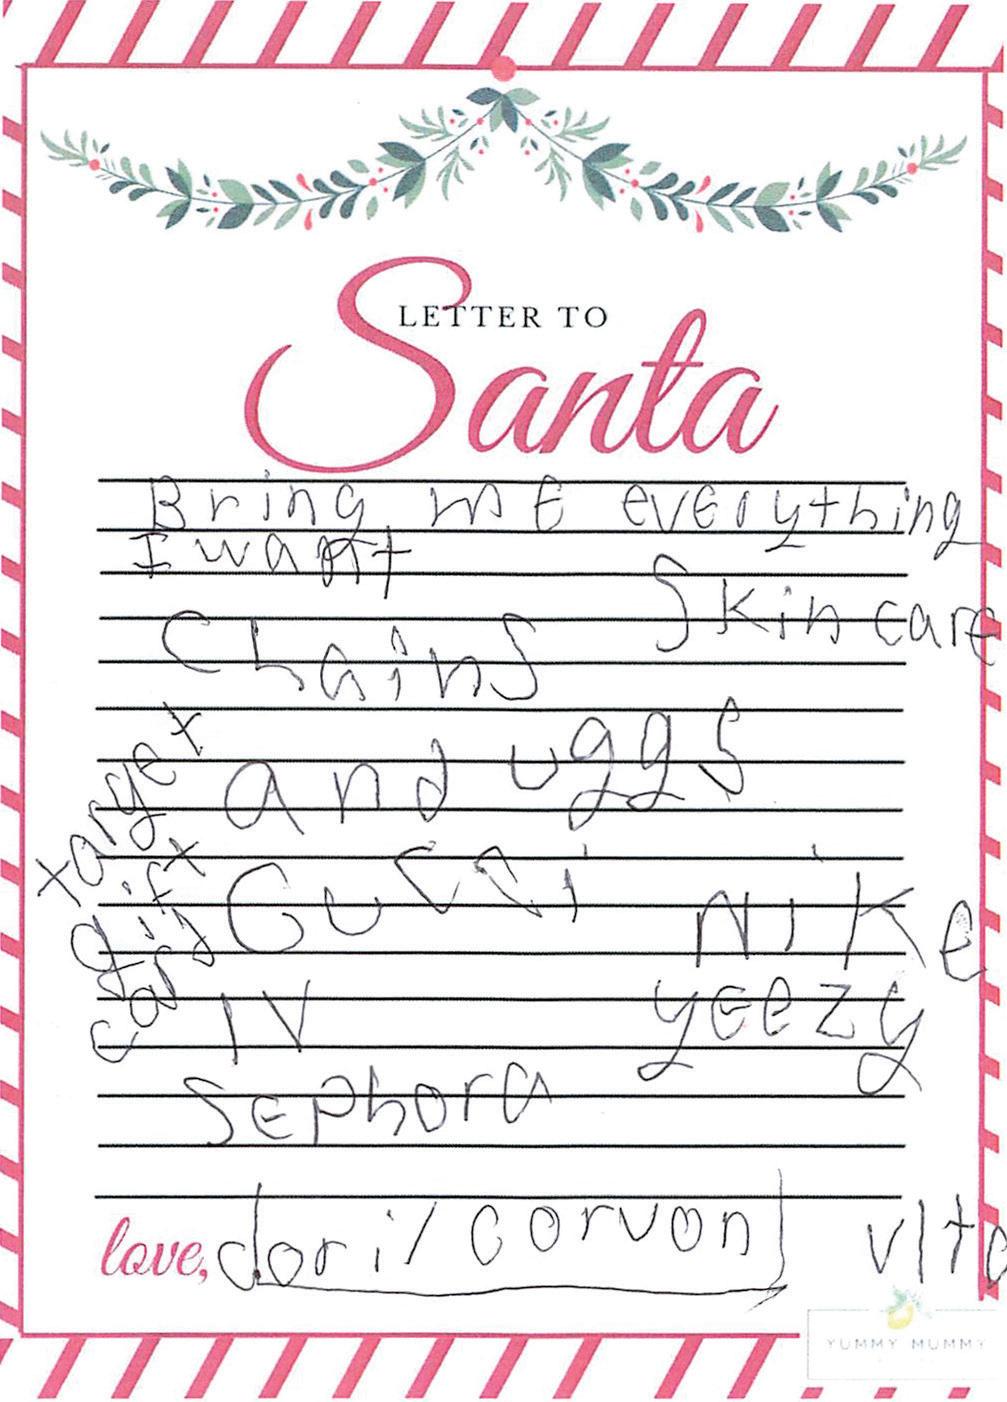 LETTER TO
Santa
Bring me everything
I want
Skin care
Chains
and uggs
target
gift
card
Gucci
Nike
lV
yeezy
Sephora
love, dori/corvon vito
YUMMY MUMMY